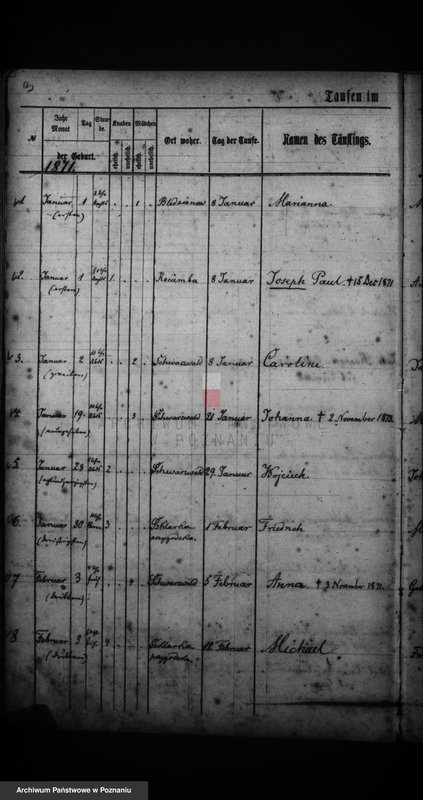 Taufen im
№ Jahr Monat Tag Stunde. Knaben Mädchen Ort woher. Tag der Taufe. Namen des Täuflings.
der Geburt. ehelich. unehelich. ehelich. unehelich.
1871.
Januar 1 1 8 Januar Marianna.
(ersten)
2. Januar 1 1. 8 Januar Joseph Paul. † 15 Dec 1871
(ersten)
3. Januar 2 2 Schwarzwald 8 Januar Caroline.
(zweiten)
4. Januar 19 3 Schwarzwald 21 Januar Johanna. † 2. November 1873.
(neunzehnten)
5. Januar 28 2 Schwarzwald 29. Januar Wojciech.
(achtundzwanzigsten)
6. Januar 30 3 Szklarka 1 Februar Friedrich.
(dreißigsten) przygodzka.
7 Februar 3 4 Schwarzwald 5 Februar Anna. † 3 November 1871.
(dritten)
8 Februar 3 4 Szklarka 12 Februar Michael
(dritten) przygodzka.
POZNANIU
Archiwum Państwowe w Poznaniu